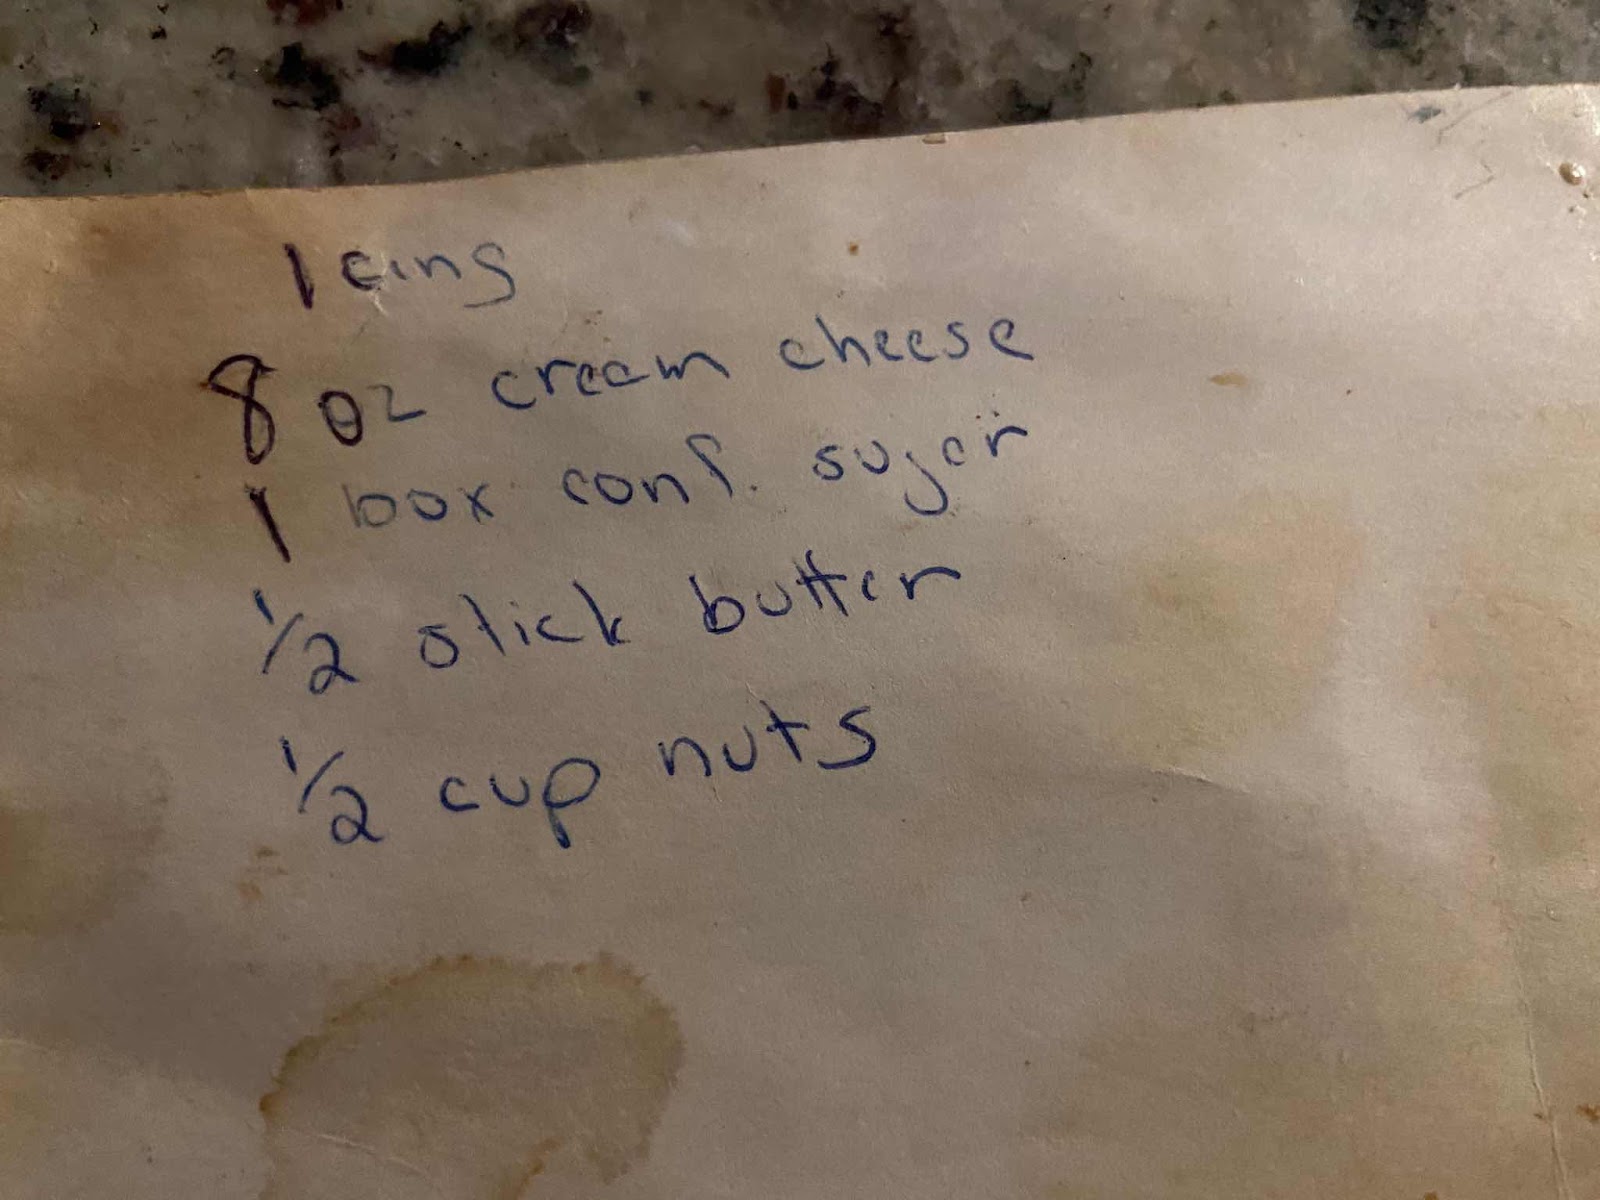 Icing
8 oz cream cheese
1 box conf. sugar
1/2 stick butter
1/2 cup nuts